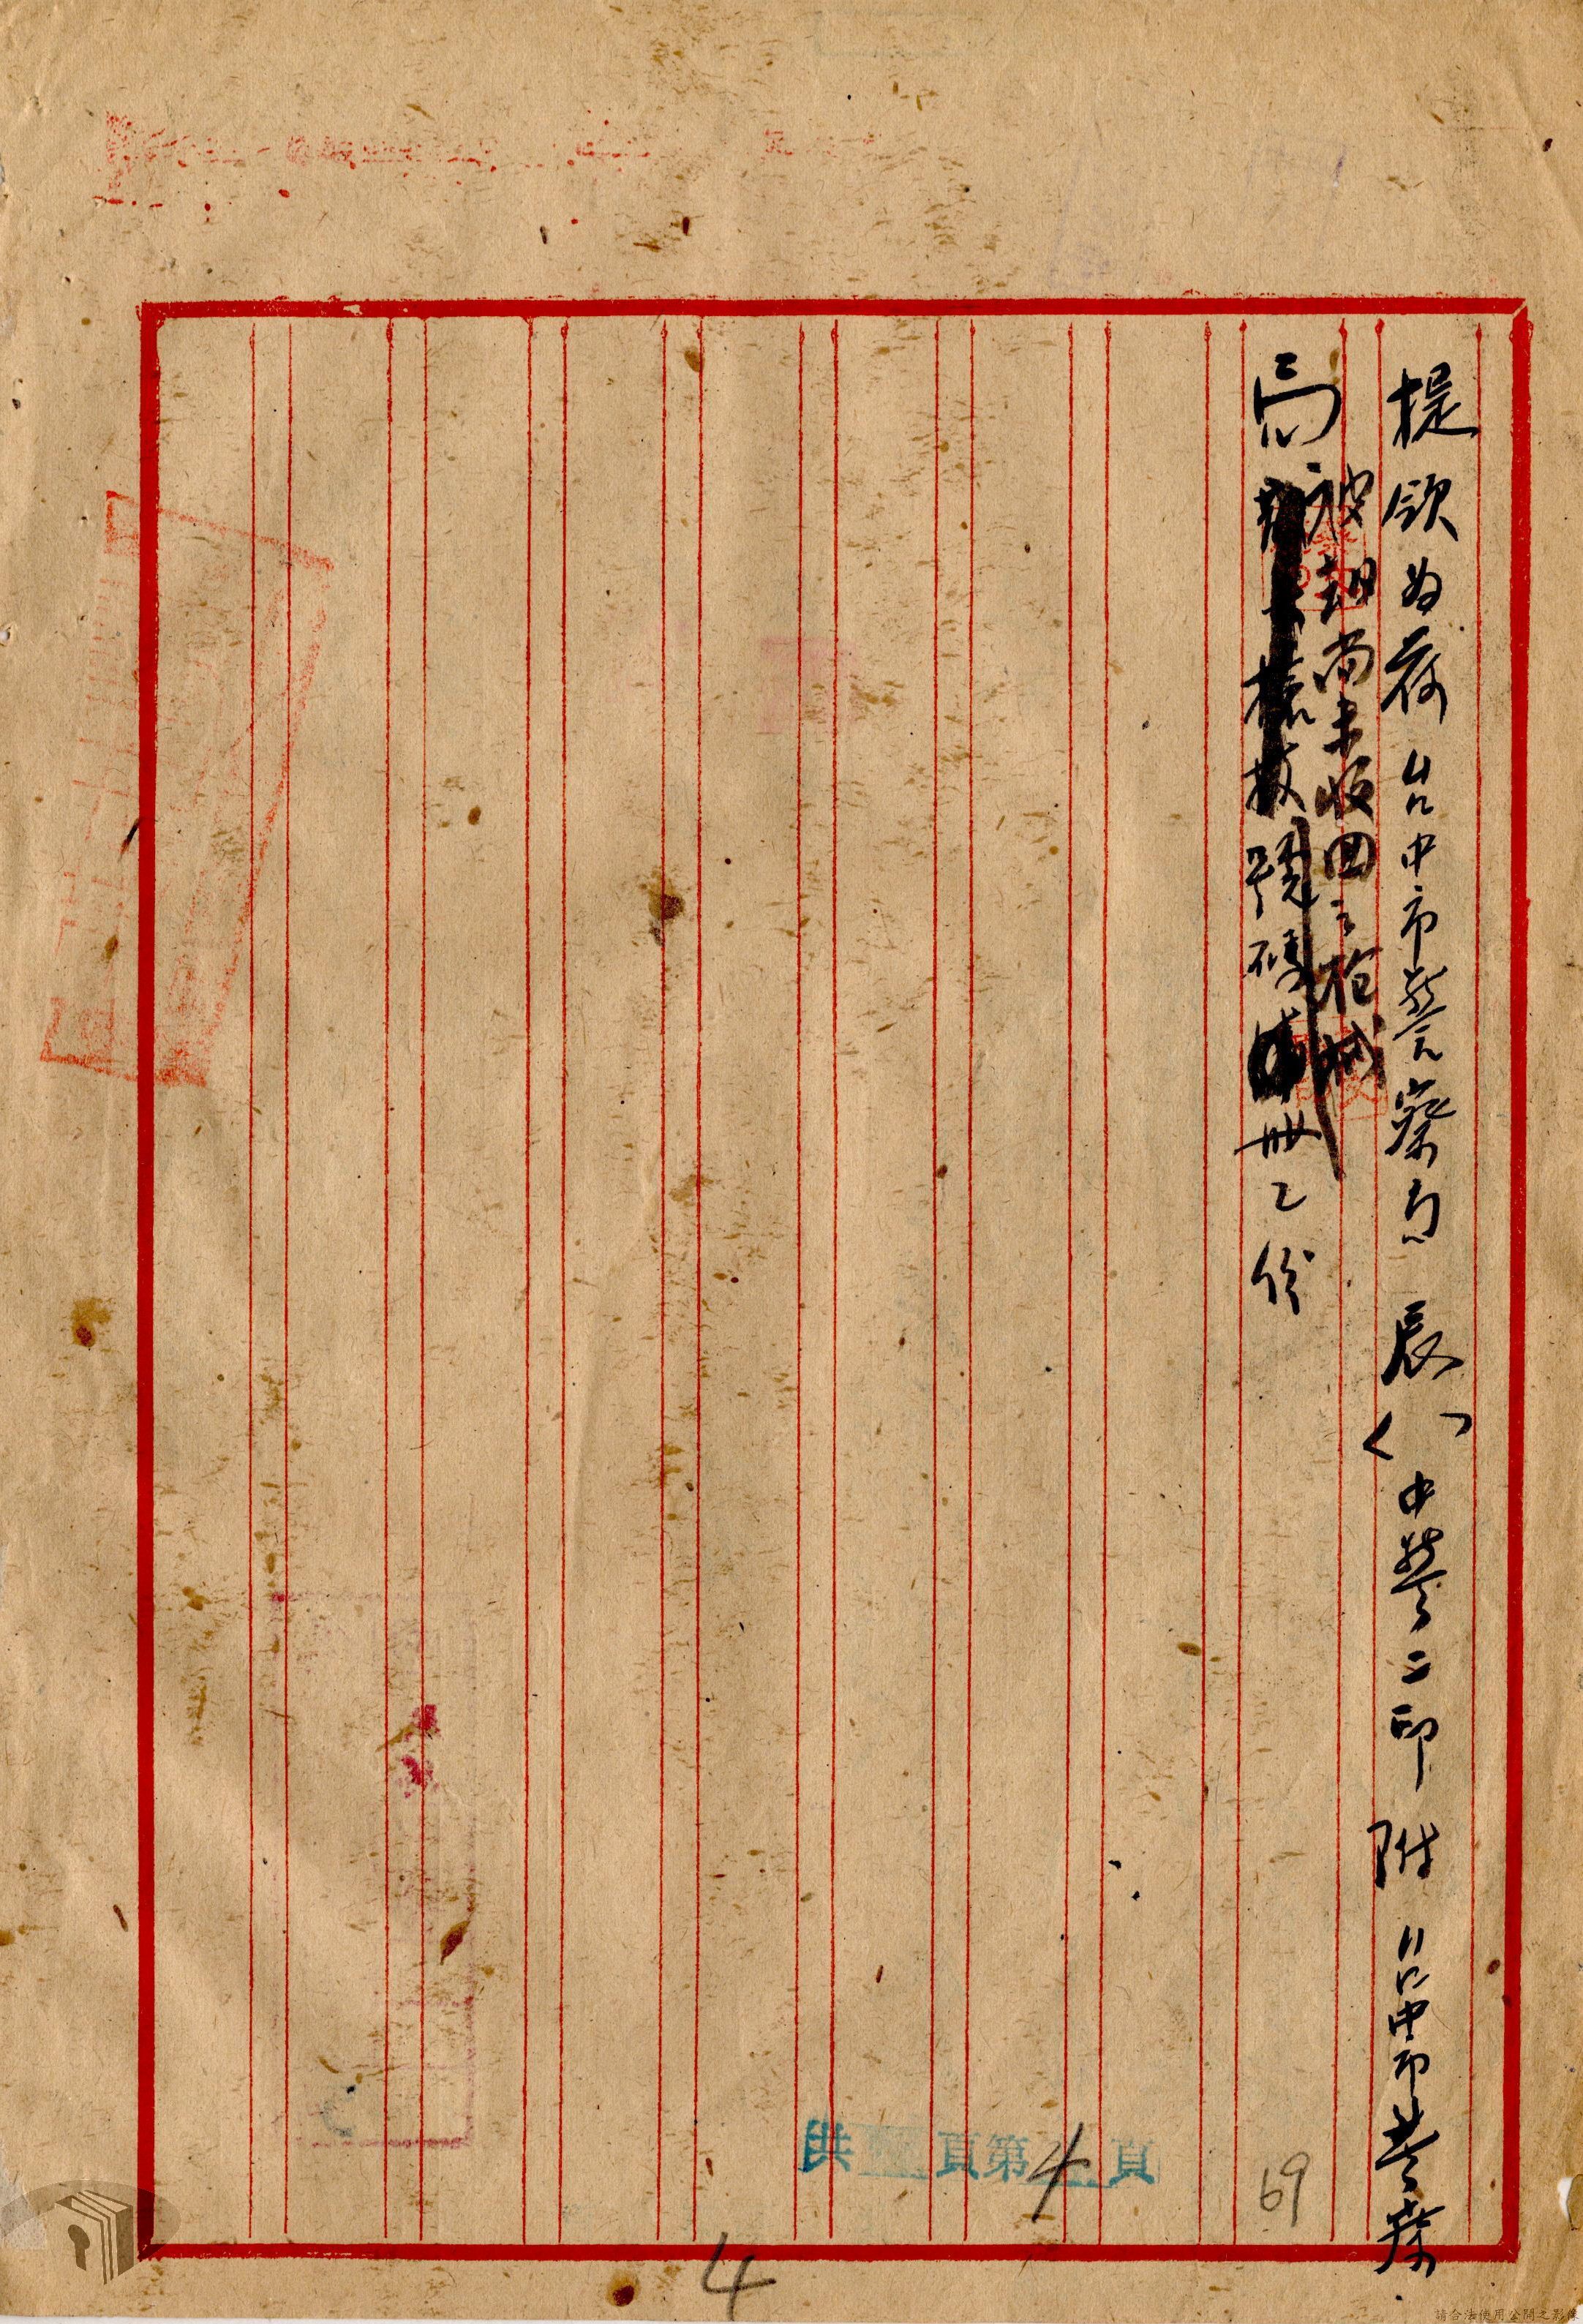 提領為荷 台中市警察局 辰 () 中警二印 附 台中市警察
局
被劫尚未收回之槍械
槍枝號碼
册乙份
共 頁第4頁
69
4
請合法使用公開之影像